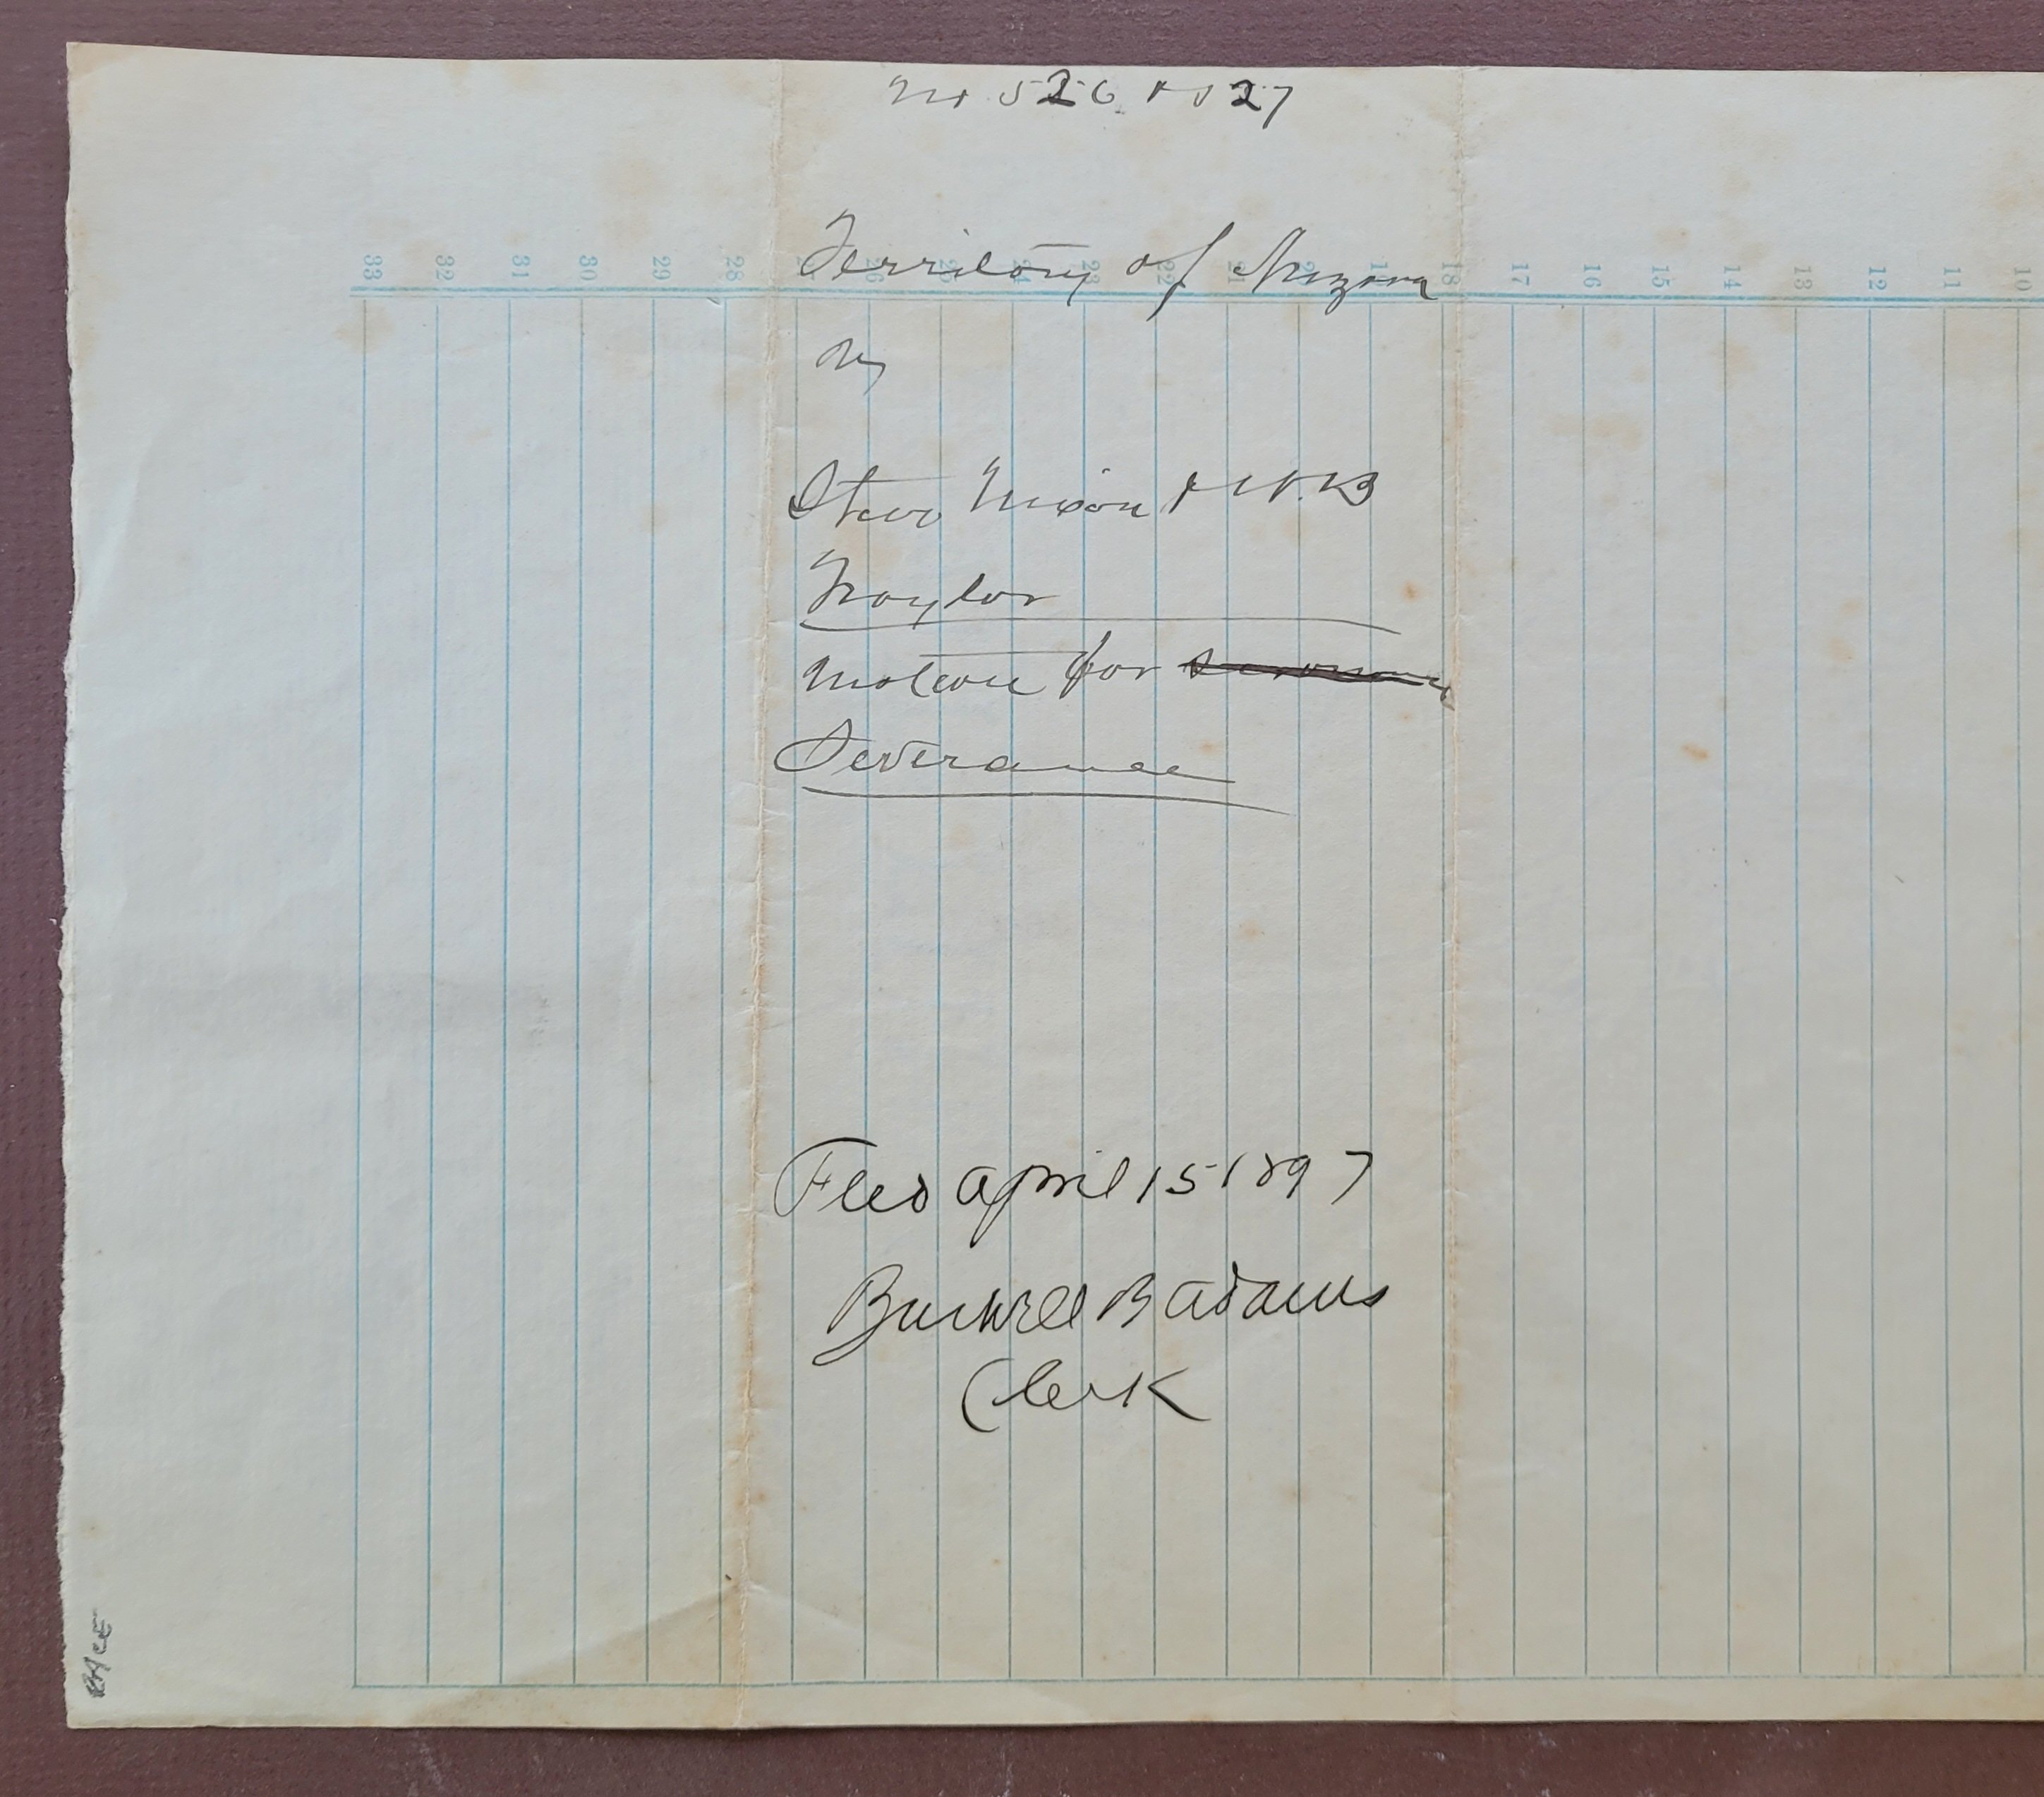 No 526 & 527
33 32 31 30 29 28 27 26 25 24 23 22 21 20 19 18 17 16 15 14 13 12 11 10
Territory of Arizona
vs
Steve Nixon & W.B
Traylor
Motion for
Severance
Filed April 15 1897
Burwell B Adams
Clerk